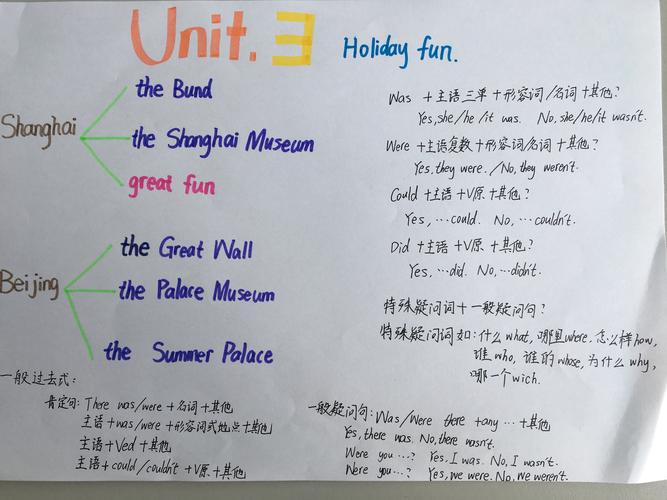 Unit. 3 Holiday fun.
Shanghai
the Bund
the Shanghai Museum
great fun
Beijing
the Great Wall
the Palace Museum
the Summer Palace
Was +主语三单+形容词/名词+其他?
Yes,she/he/it was. No,she/he/it wasn't.
Were +主语复数+形容词/名词+其他?
Yes,they were./No,they weren't.
Could +主语+V原+其他?
Yes,…could. No,…couldn't.
Did +主语+V原+其他?
Yes,…did. No,…didn't.
特殊疑问词+一般疑问句?
特殊疑问词如:什么what,哪里where.怎么样how,
谁who,谁的whose,为什么why,
哪一个wich.
一般过去式:
肯定句: There was/were+名词+其他
主语+was/were+形容词或地点+其他
主语+Ved+其他
主语+could/couldn't+V原+其他
一般疑问句:Was/Were there +any … +其他
Yes,there was. No,there wasn't.
Were you…? Yes,I was. No,I wasn't.
Were you…? Yes,we were. No,we weren't.